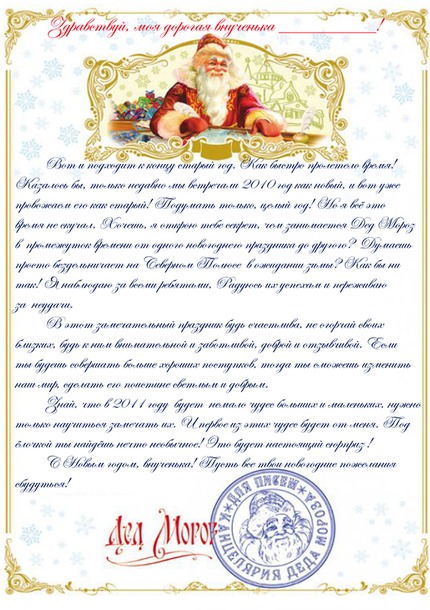 Здравствуй, моя дорогая внученька ______________!
Вот и подходит к концу старый год. Как быстро пролетело время!
Казалось бы, только недавно мы встречали 2010 год как новый, и вот уже
провожаем его как старый! Подумать только, целый год! Но я всё это
время не скучал. Хочешь, я открою тебе секрет, чем занимается Дед Мороз
в промежуток времени от одного новогоднего праздника до другого? Думаешь
просто бездельничает на Северном Полюсе в ожидании зимы? Как бы ни
так! Я наблюдаю за всеми ребятами. Радуюсь их успехам и переживаю
за неудачи.
В этот замечательный праздник будь счастлива, не огорчай своих
близких, будь к ним внимательной и заботливой, доброй и отзывчивой. Если
ты будешь совершать больше хороших поступков, тогда ты сможешь изменить
наш мир, сделать его поистине светлым и добрым.
Знай, что в 2011 году будет немало чудес больших и маленьких, нужно
только научиться замечать их. И первое из этих чудес будет от меня. Под
ёлочкой ты найдёшь нечто необычное! Это будет настоящий сюрприз!
С Новым годом, внученька! Пусть все твои новогодние пожелания
сбудутся!
Дед Мороз
КАНЦЕЛЯРИЯ ДЕДА МОРОЗА
ДЛЯ ПИСЕМ